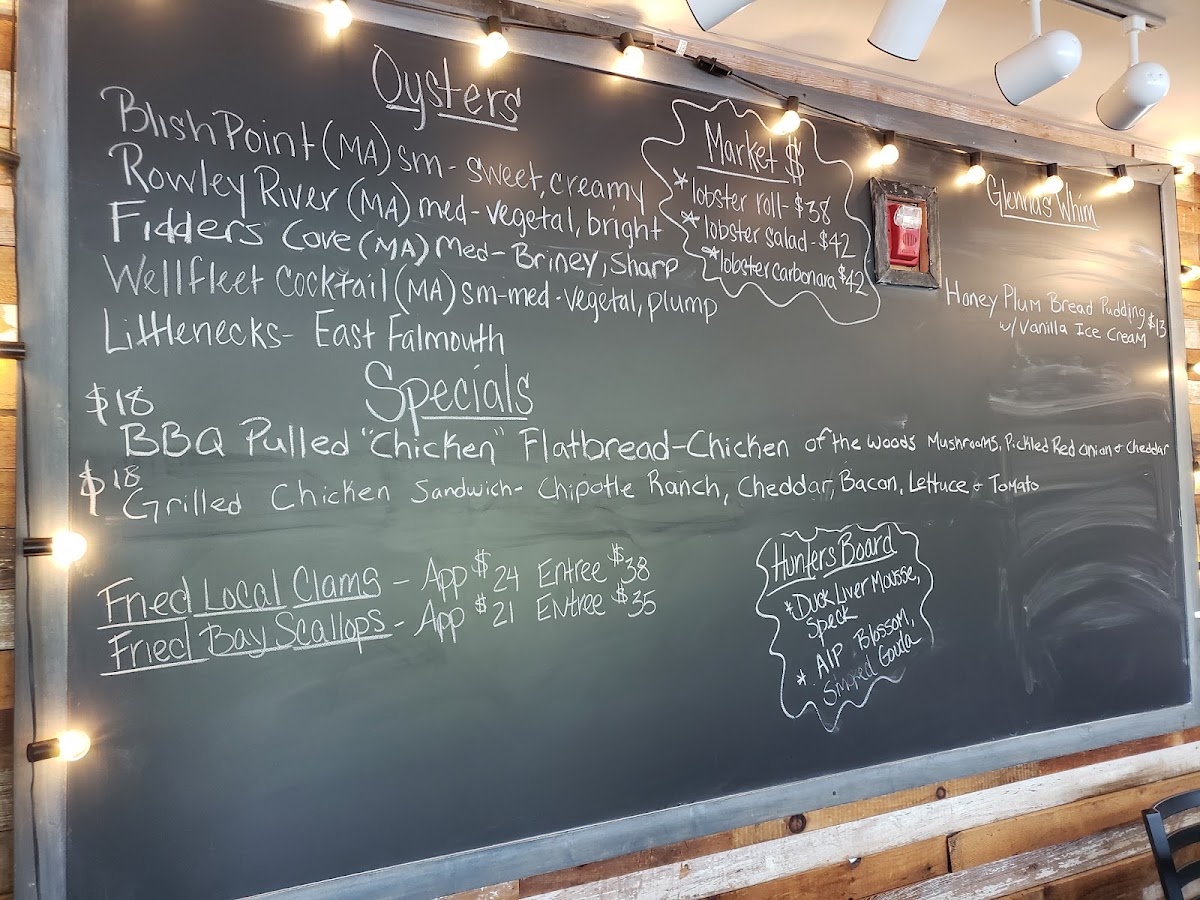 Oysters
Blish Point (MA) sm - sweet, creamy
Rowley River (MA) med - vegetal, bright
Fidders Cove (MA) Med - Briney, sharp
Wellfleet Cocktail (MA) sm-med - vegetal, plump
Littlenecks - East Falmouth
Market $
* lobster roll - $38
* lobster salad - $42
* lobster carbonara $42
Glenna's Whim
Honey Plum Bread Pudding $13
w/ Vanilla Ice Cream
Specials
$18
BBQ Pulled "Chicken" Flatbread - Chicken of the Woods Mushrooms, Pickled Red Onion & Cheddar
$18
Grilled Chicken Sandwich - Chipotle Ranch, Cheddar, Bacon, Lettuce & Tomato
Fried Local Clams - App $24 Entree $38
Fried Bay Scallops - App $21 Entree $35
Hunters Board
* Duck Liver Mousse,
Speck
* Alp Blossom,
Smoked Gouda